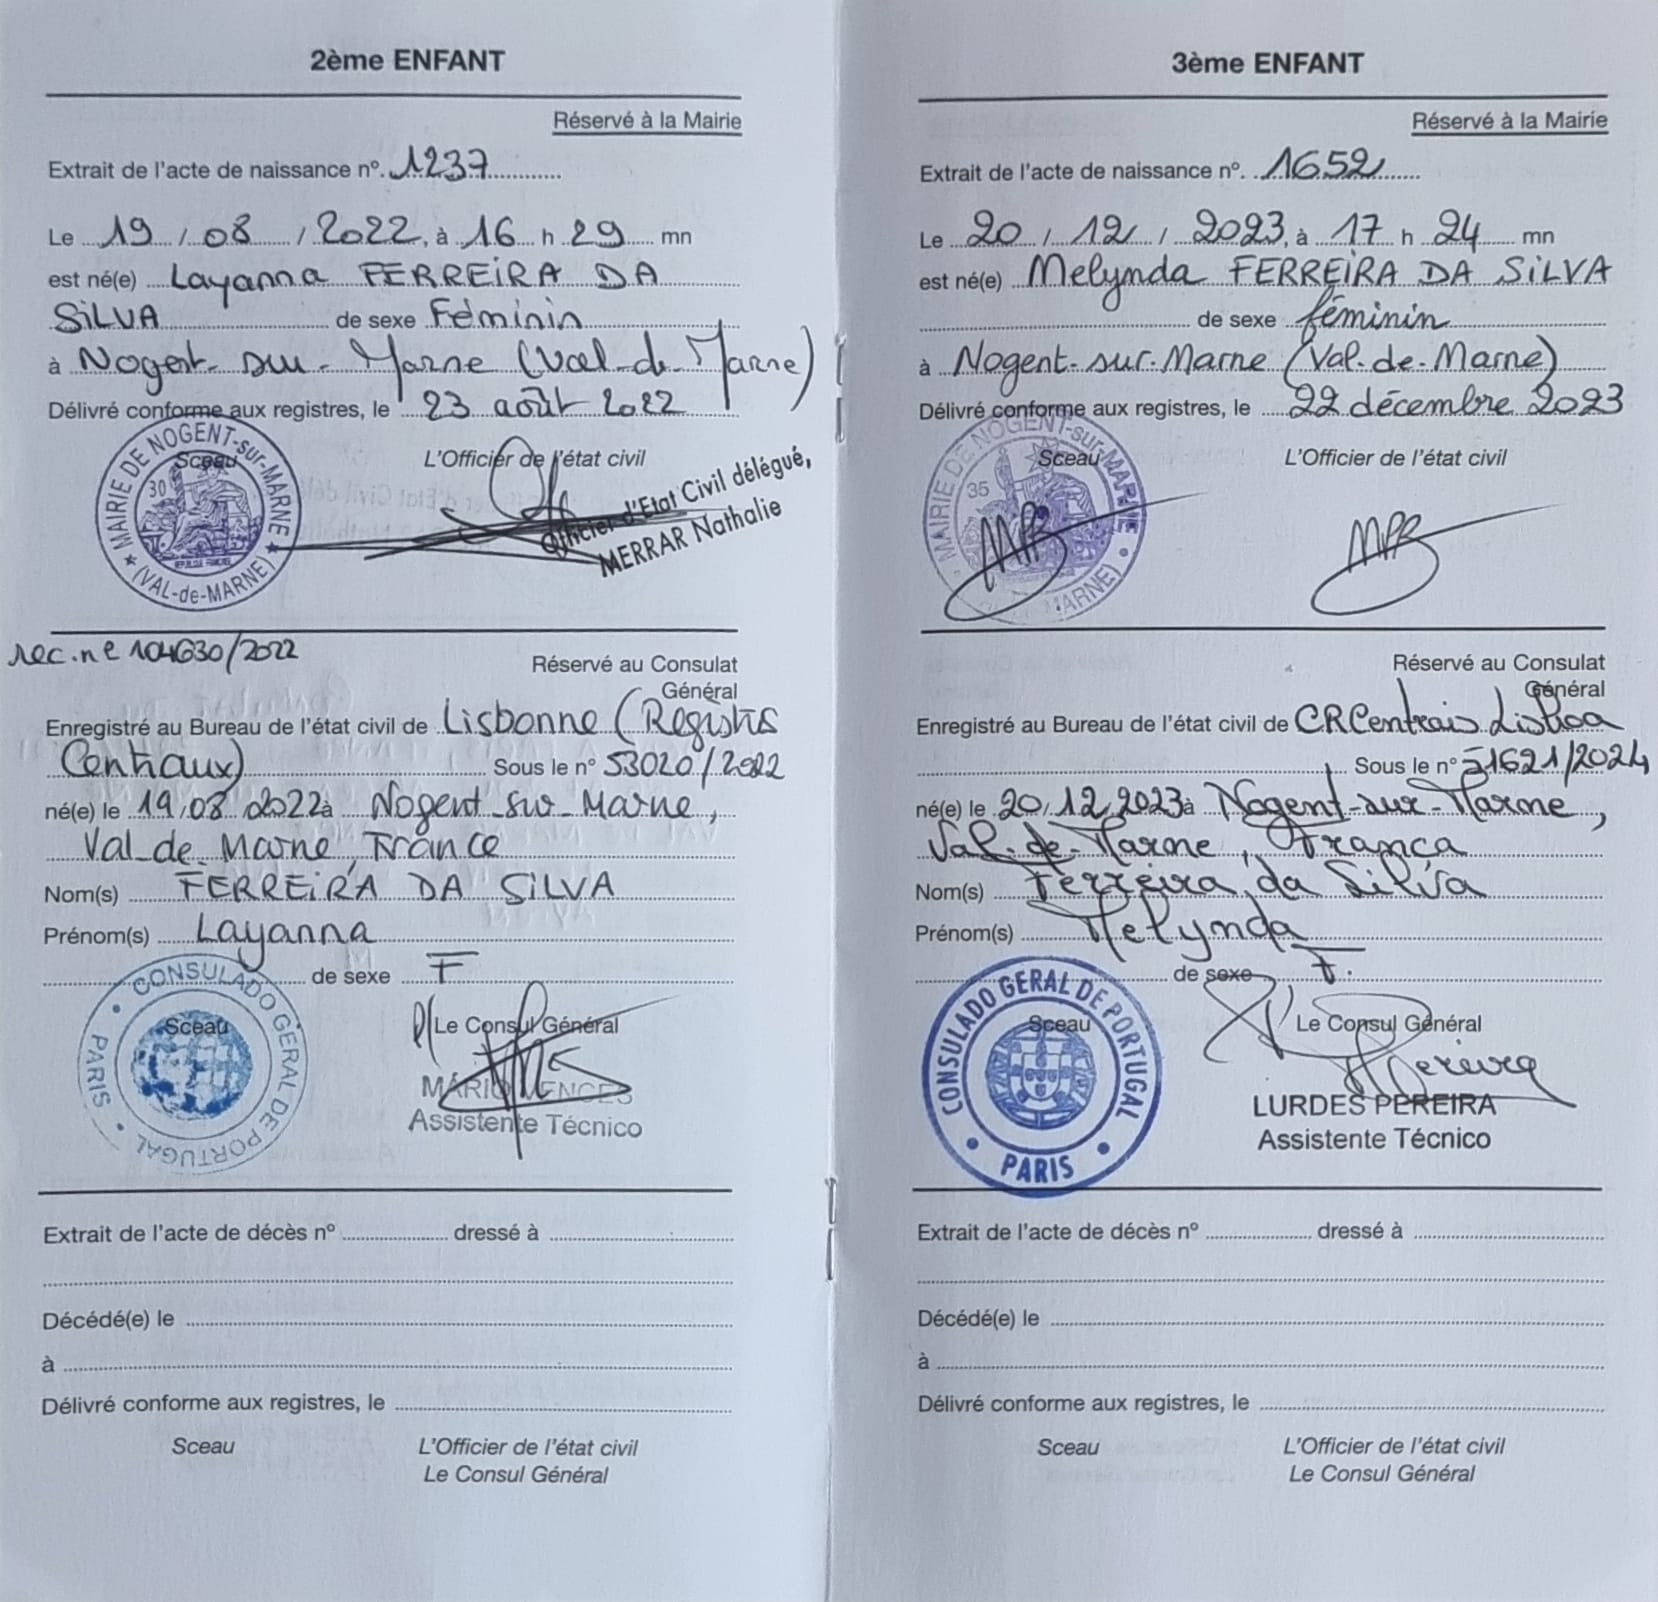 2ème ENFANT
Réservé à la Mairie
Extrait de l'acte de naissance n°. 1237
Le 19 / 08 / 2022, à 16 h 29 mn
est né(e) Layanna FERREIRA DA
SILVA de sexe Féminin
à Nogent-sur-Marne (Val-de-Marne)
Délivré conforme aux registres, le 23 août 2022
Sceau L'Officier de l'état civil
MAIRIE DE NOGENT-sur-MARNE
30
RÉPUBLIQUE FRANÇAISE
(VAL-de-MARNE)
Officier d'Etat Civil délégué,
MERRAR Nathalie
rec.ne 104630/2022
Réservé au Consulat
Général
Enregistré au Bureau de l'état civil de Lisbonne (Registres
Centraux) Sous le n° 53020/2022
né(e) le 19/08/2022 à Nogent-sur-Marne,
Val-de-Marne, France
Nom(s) FERREIRA DA SILVA
Prénom(s) Layanna
de sexe F
Sceau P/Le Consul Général
CONSULADO GERAL DE PORTUGAL
PARIS
MÁRIO
Assistente Técnico
Extrait de l'acte de décès n° dressé à
Décédé(e) le
à
Délivré conforme aux registres, le
Sceau L'Officier de l'état civil
Le Consul Général
3ème ENFANT
Réservé à la Mairie
Extrait de l'acte de naissance n°. 1652
Le 20 / 12 / 2023, à 17 h 24 mn
est né(e) Melynda FERREIRA DA SILVA
de sexe féminin
à Nogent-sur-Marne (Val-de-Marne)
Délivré conforme aux registres, le 22 décembre 2023
Sceau L'Officier de l'état civil
MAIRIE DE NOGENT-sur-MARNE
35
MARNE)
Réservé au Consulat
Général
Enregistré au Bureau de l'état civil de CRCentrais Lisboa
Sous le n° 51621/2024
né(e) le 20/12/2023 à Nogent-sur-Marne,
Val-de-Marne, França
Nom(s) Ferreira da Silva
Prénom(s) Melynda
de sexe F.
Sceau Le Consul Général
CONSULADO GERAL DE PORTUGAL
PARIS
Pereira
LURDES PEREIRA
Assistente Técnico
Extrait de l'acte de décès n° dressé à
Décédé(e) le
à
Délivré conforme aux registres, le
Sceau L'Officier de l'état civil
Le Consul Général